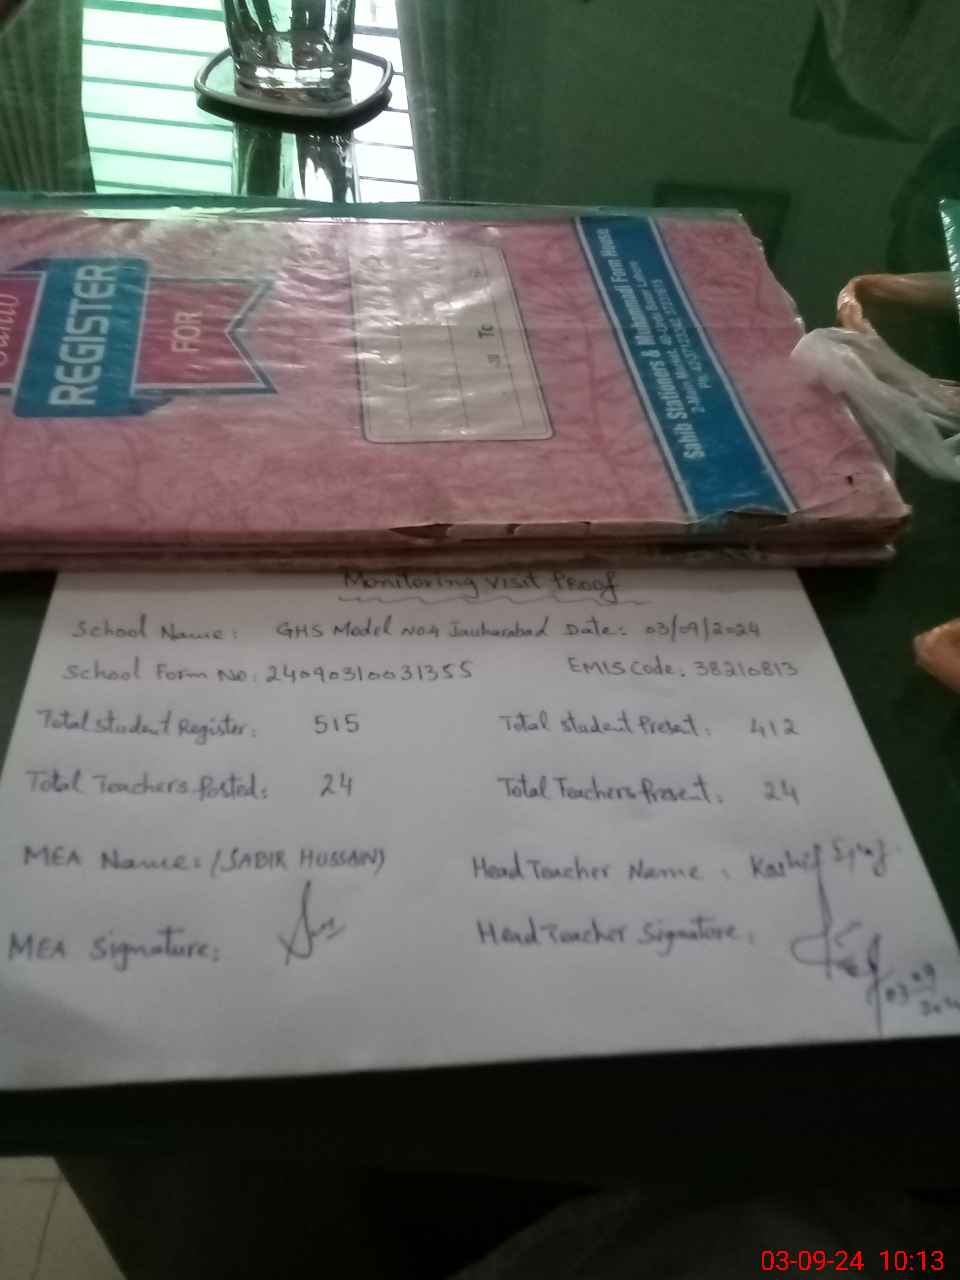 REGISTER
FOR
To
Sahib Stationers & Muhammadi Form House
2-Main Market, 40-Urdu Bazar Lahore
Monitoring visit Proof
School Name: GHS Model No.4 Jauharabad Date: 03/09/2024
School Form No: 24090310031355 EMIS Code: 38210813
Total student Register: 515 Total student Present: 412
Total Teachers Posted: 24 Total Teachers Present: 24
MEA Name: (SABIR HUSSAIN) Head Teacher Name: Kashif
MEA Signature: Head Teacher Signature:
03-09-24 10:13